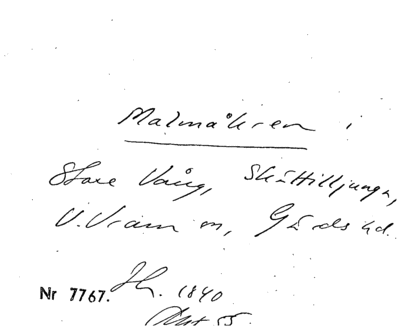 Malmåkern i
Store Vång, Skättilljunga,
V. Vram sn, Gärds hd.
Nr 7767. Jh. 1840
Akt 55.